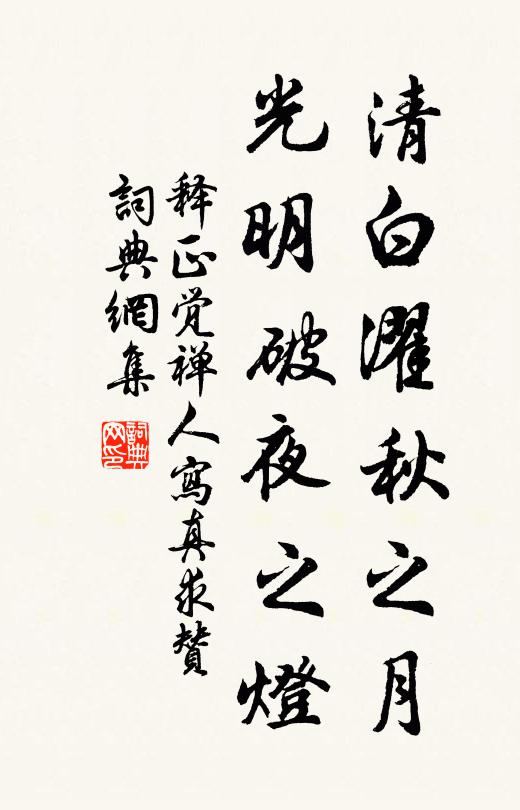 清白濯秋之月
光明破夜之燈
释正觉禅人寫真求贊
詞典網集
詞典网印